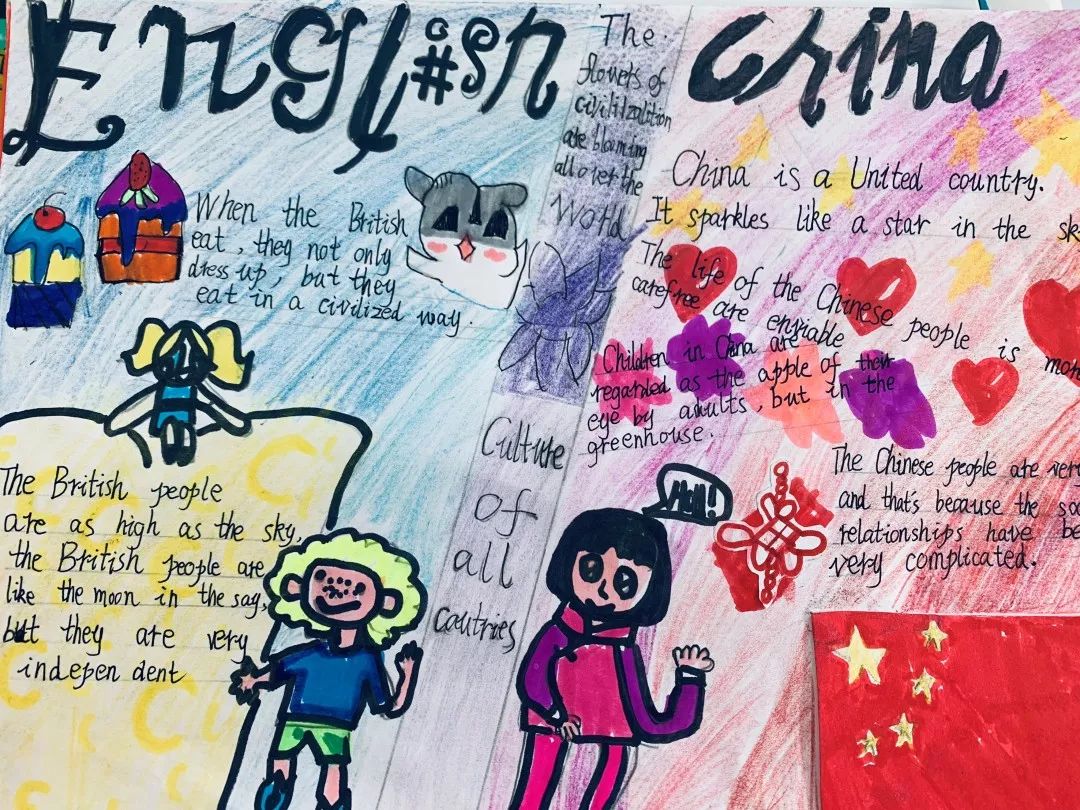 English
The
flowers of
civilization
are blooming
all over the
World
China
When the British
eat, they not only
dress up, but they
eat in a civilized way.
China is a United country.
It sparkles like a star in the sk
The life of the Chinese people is mor
carefree are enviable
Children in China are
regarded as the apple of their
eye by adults, but in the
greenhouse.
Culture
of
all
coutries
The British people
are as high as the sky,
the British people are
like the moon in the say,
but they are very
indepen dent
The Chinese people are very
and that's because the soc
relationships have be
very complicated.